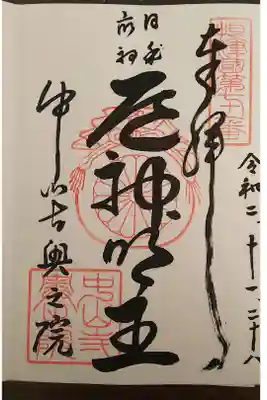 摂津国第七十番
奉拝
令和二、十一、二十八
日本
最初
厄神明王
中山寺奥之院